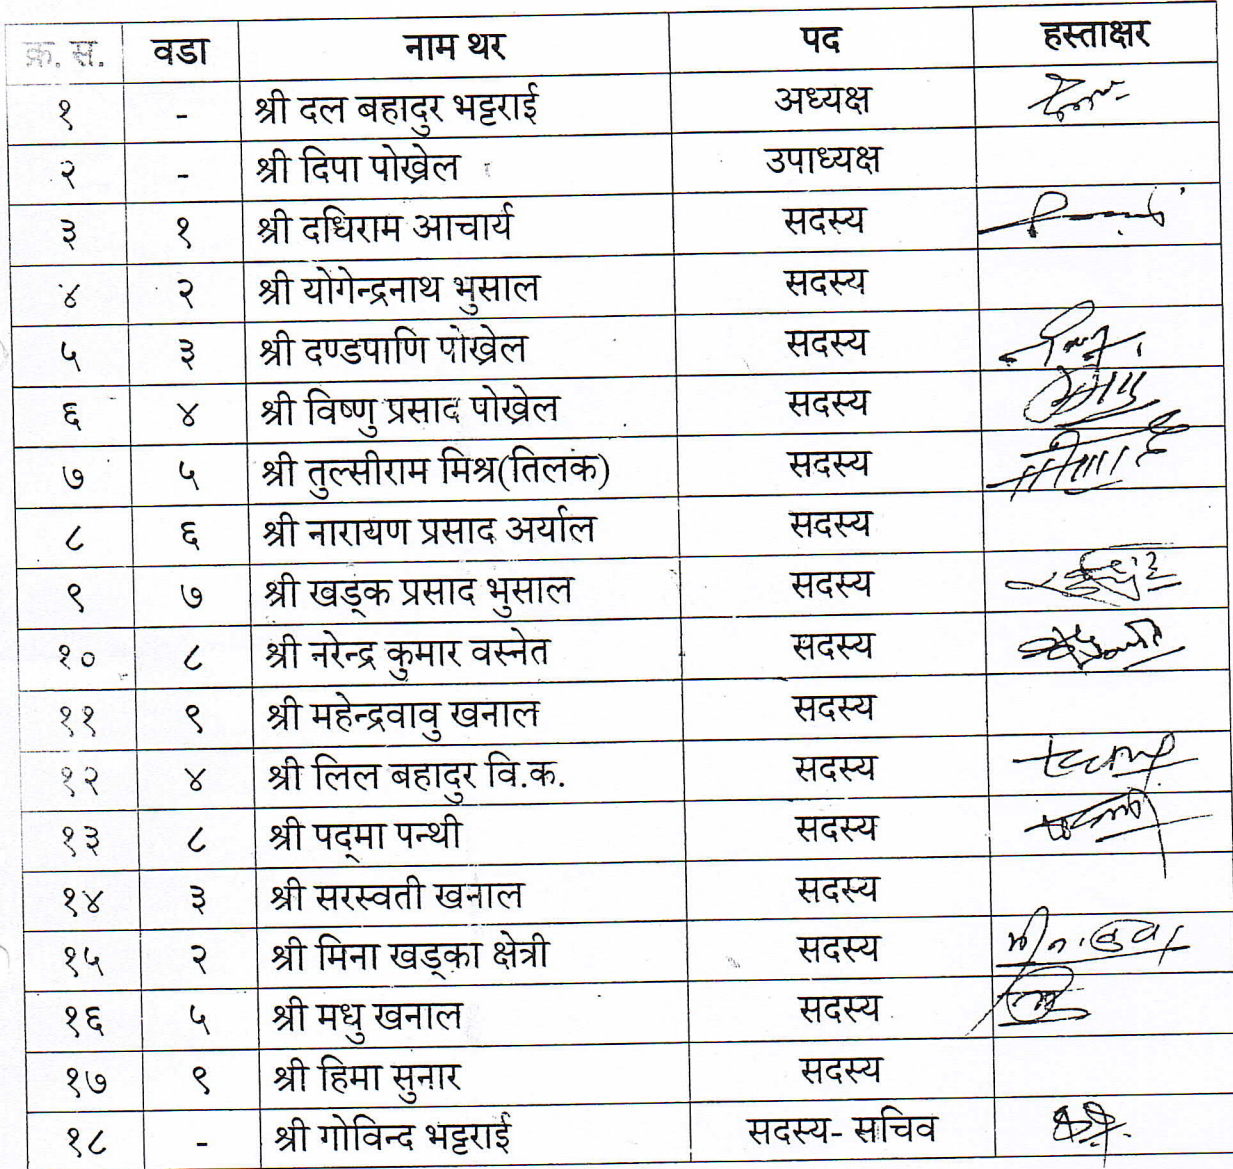 क्र. स. वडा नाम थर पद हस्ताक्षर
१ - श्री दल बहादुर भट्टराई अध्यक्ष
२ - श्री दिपा पोख्रेल उपाध्यक्ष
३ १ श्री दधिराम आचार्य सदस्य
४ २ श्री योगेन्द्रनाथ भुसाल सदस्य
५ ३ श्री दण्डपाणि पोख्रेल सदस्य
६ ४ श्री विष्णु प्रसाद पोख्रेल सदस्य
७ ५ श्री तुल्सीराम मिश्र(तिलक) सदस्य
८ ६ श्री नारायण प्रसाद अर्याल सदस्य
९ ७ श्री खड्क प्रसाद भुसाल सदस्य
१० ८ श्री नरेन्द्र कुमार वस्नेत सदस्य
११ ९ श्री महेन्द्रवावु खनाल सदस्य
१२ ४ श्री लिल बहादुर वि.क. सदस्य
१३ ८ श्री पद्मा पन्थी सदस्य
१४ ३ श्री सरस्वती खनाल सदस्य
१५ २ श्री मिना खड्का क्षेत्री सदस्य
१६ ५ श्री मधु खनाल सदस्य
१७ ९ श्री हिमा सुनार सदस्य
१८ - श्री गोविन्द भट्टराई सदस्य- सचिव